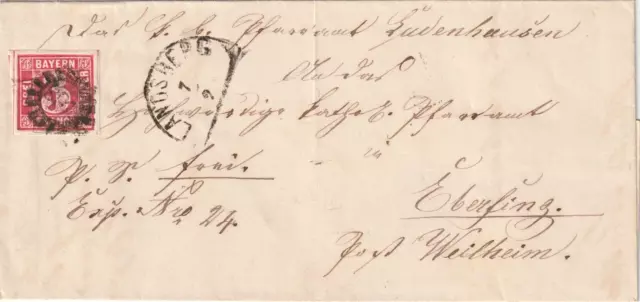 Das k. b. Pfarramt Ludenhausen
BAYERN
FREI
LANDSBERG
7
2
An das
Hochwürdige Kathol. Pfarramt
in
P. S. frei.
Eberfing.
Exp. Nro 24.
Post Weilheim.